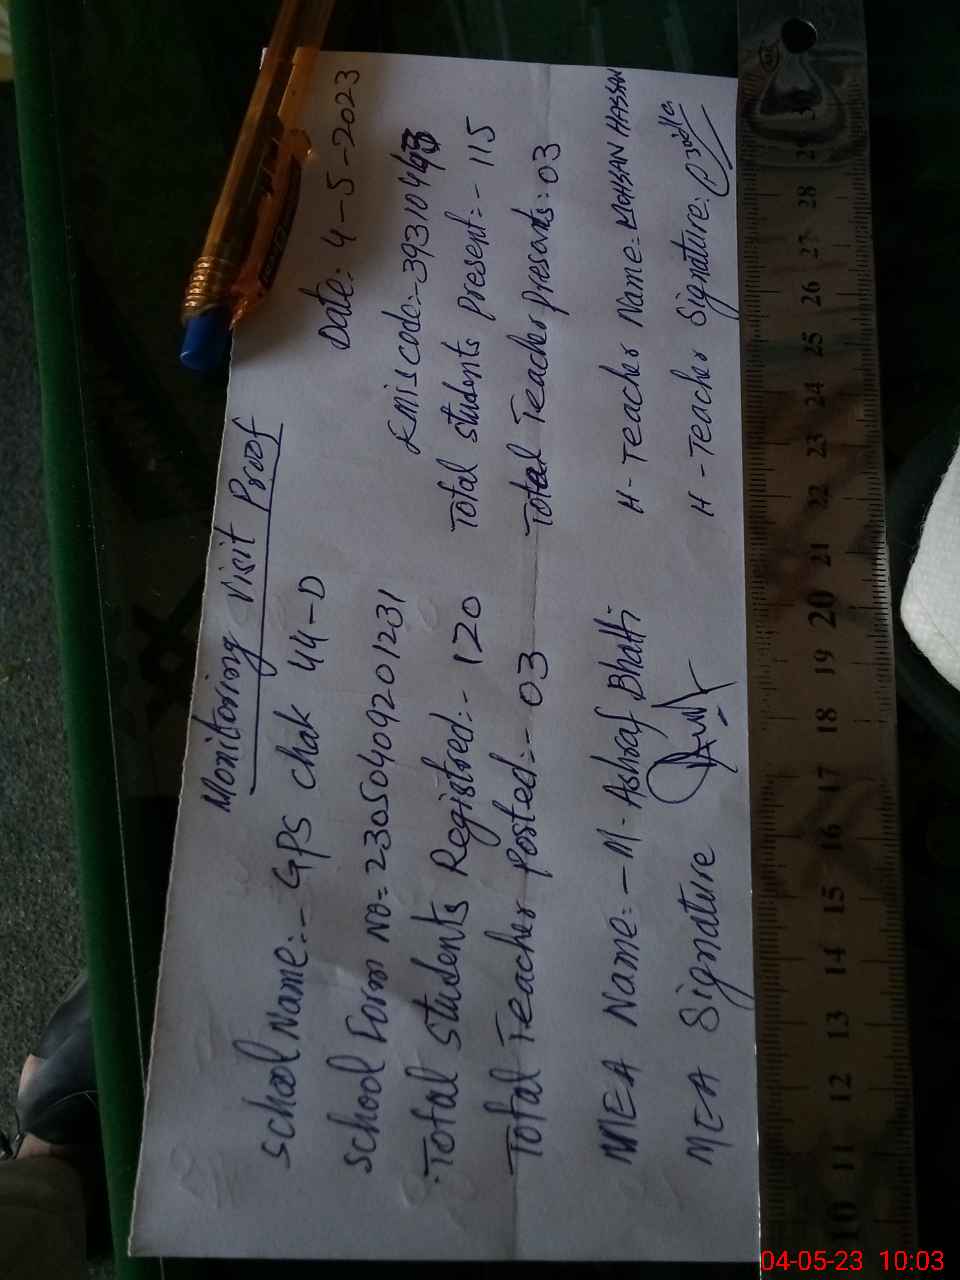 Monitoring Visit Proof
School Name:- GPS Chak 44-D Date: 4-5-2023
School Form No= 23050409201231 Emiscode:-39310443
Total Students Registered:- 120 Total Students Present:- 115
Total Teacher Posted:- 03 Total Teacher presents:03
MEA Name:- M-Ashraf Bhatti H-Teacher Name= MOHSAN HASSAN
MEA Signature H-Teacher Signature:
10 11 12 13 14 15 16 17 18 19 20 21 22 23 24 25 26 27 28 29 30
04-05-23 10:03